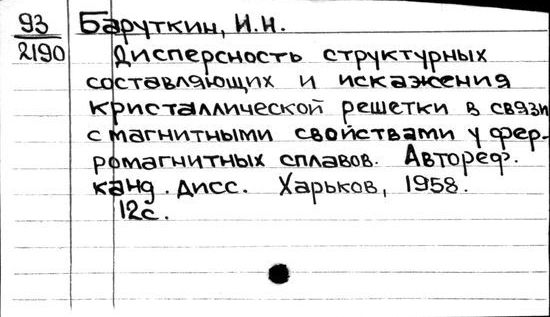 93 Баруткин, И.Н.
2190 Дисперсность структурных
составляющих и искажения
кристаллической решетки в связи
с магнитными свойствами у фер-
ромагнитных сплавов. Автореф.
канд. дисс. Харьков, 1958.
12с.